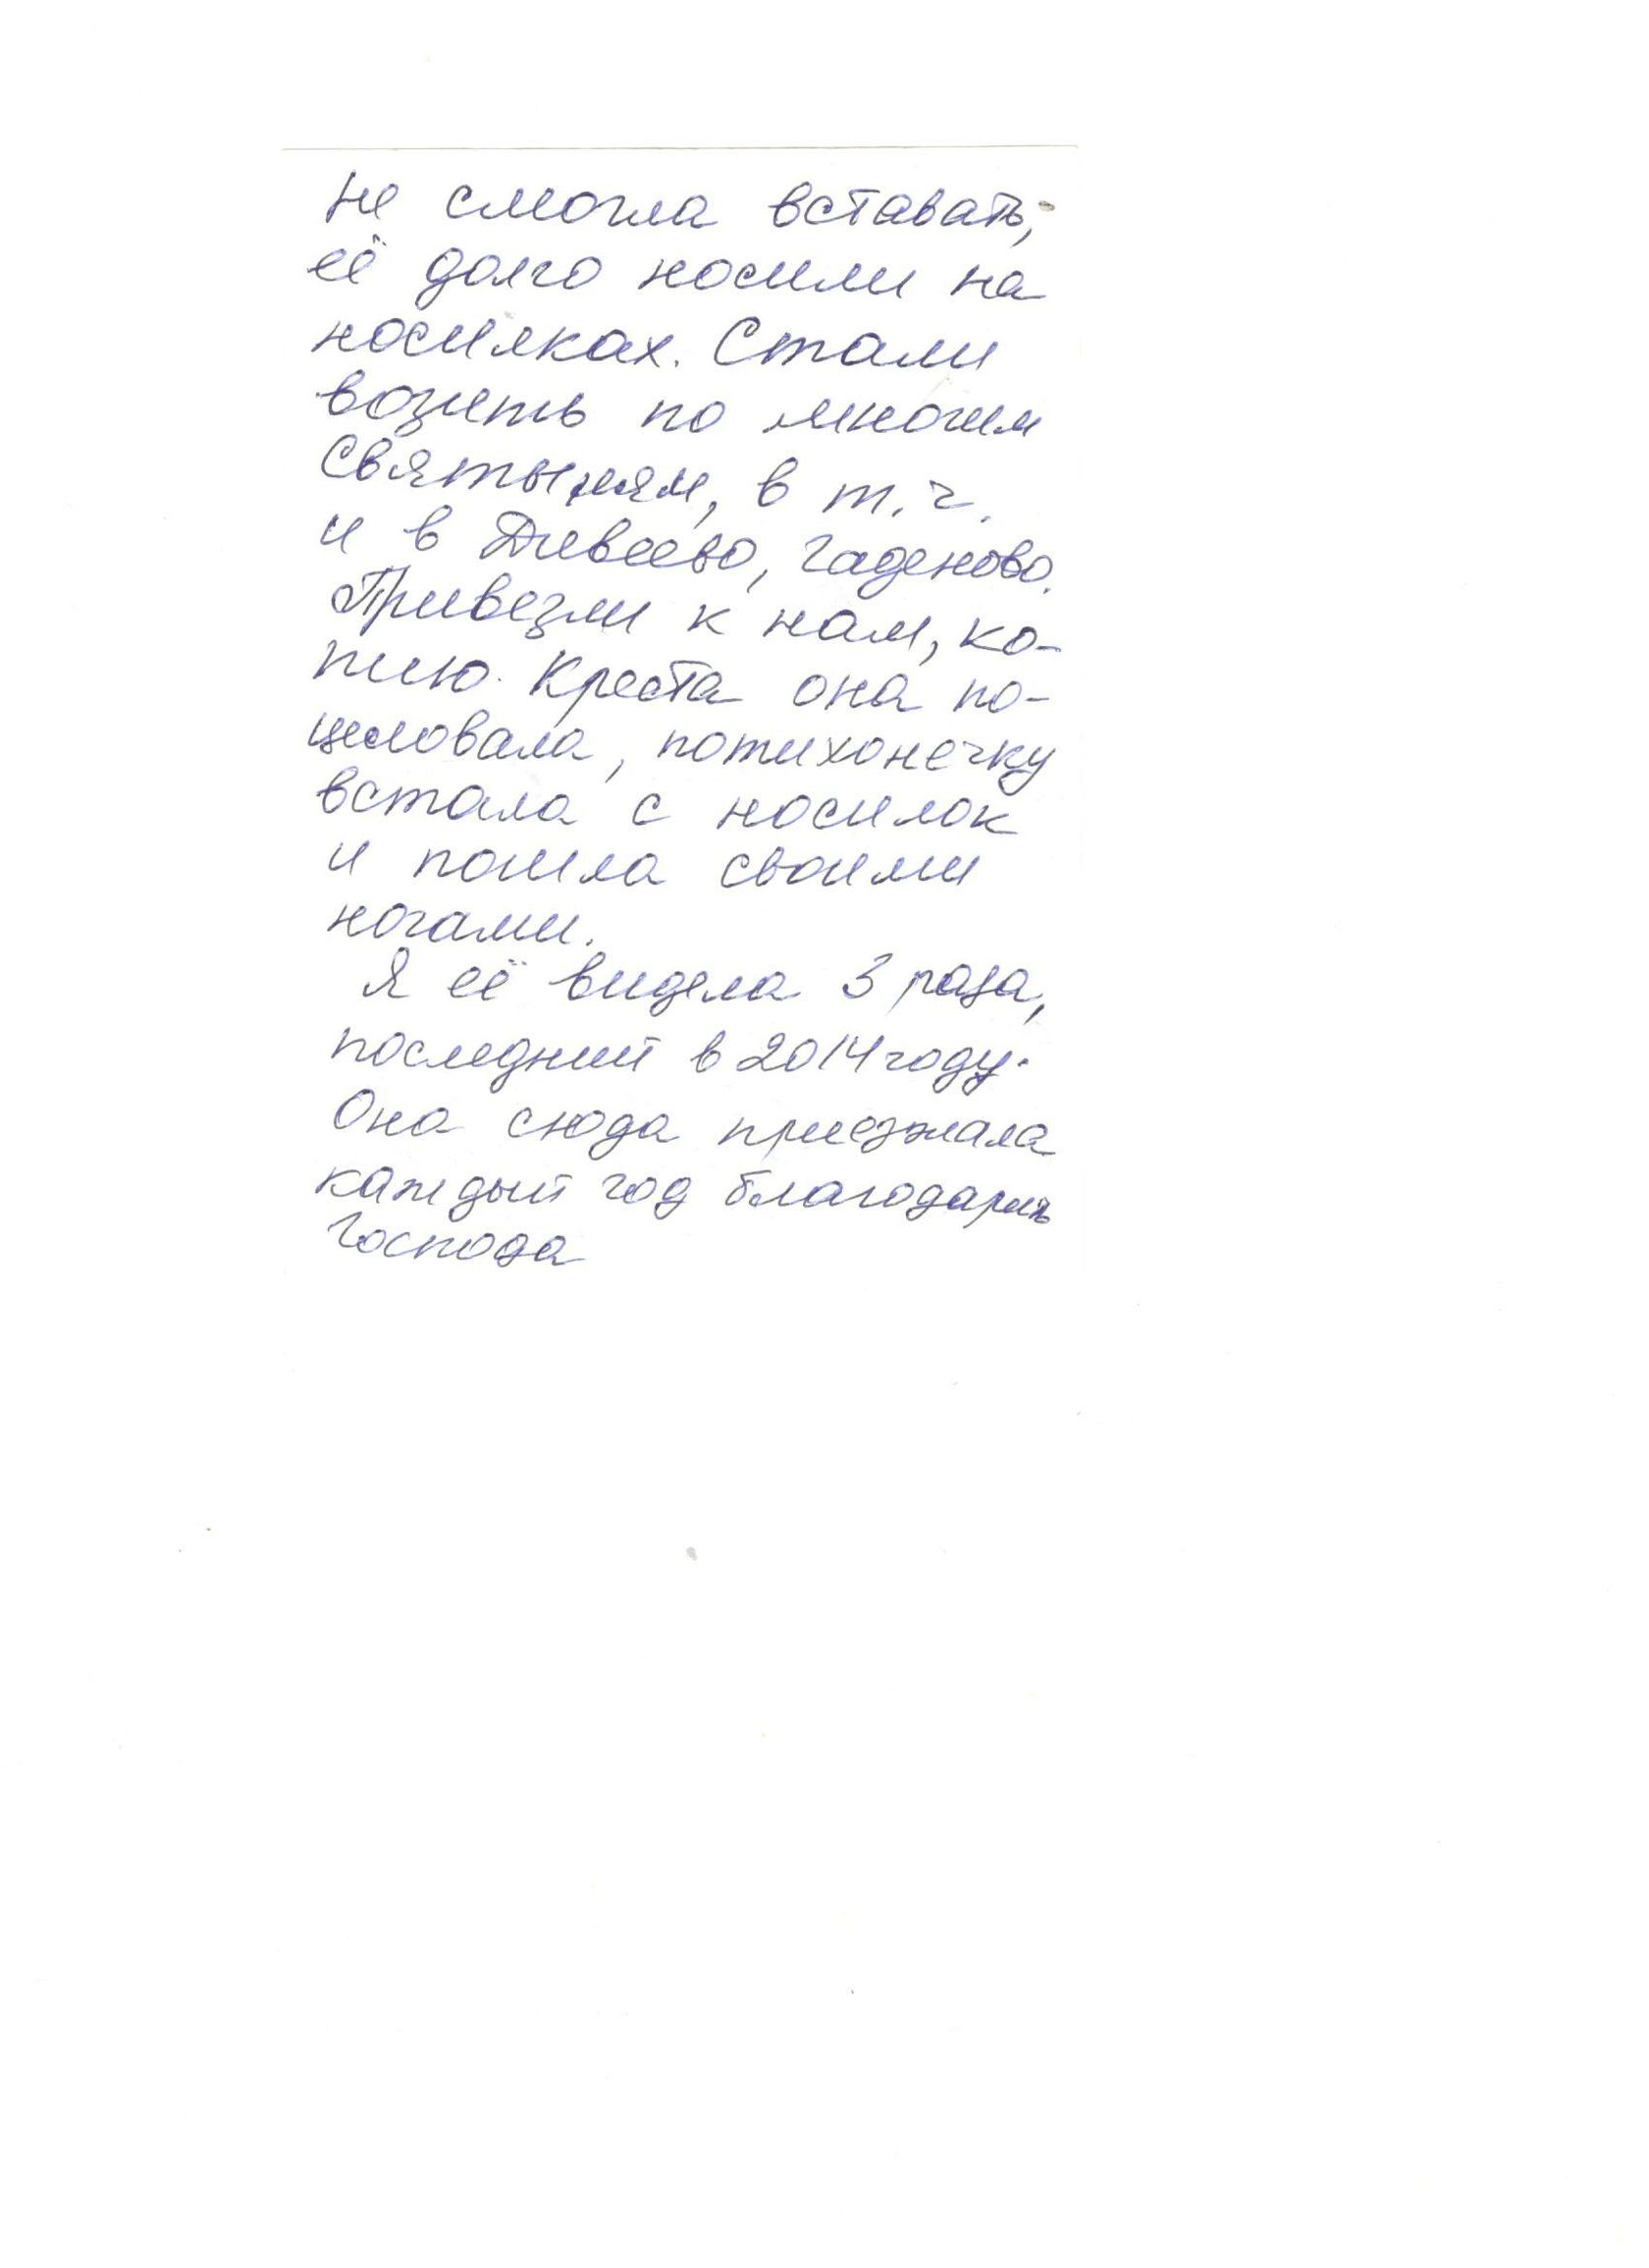 не смогла вставать,
её долго носили на
носилках. Стали
возить по многим
Святыням, в т.ч.
и в Дивеево, Гаденово.
Привезли к нам, ко-
пию Креста она по-
целовала, потихонечку
встала с носилок
и пошла своими
ногами.
Я её видела 3 раза,
последний в 2014 году.
Она сюда приезжала
каждый год благодарить
Господа